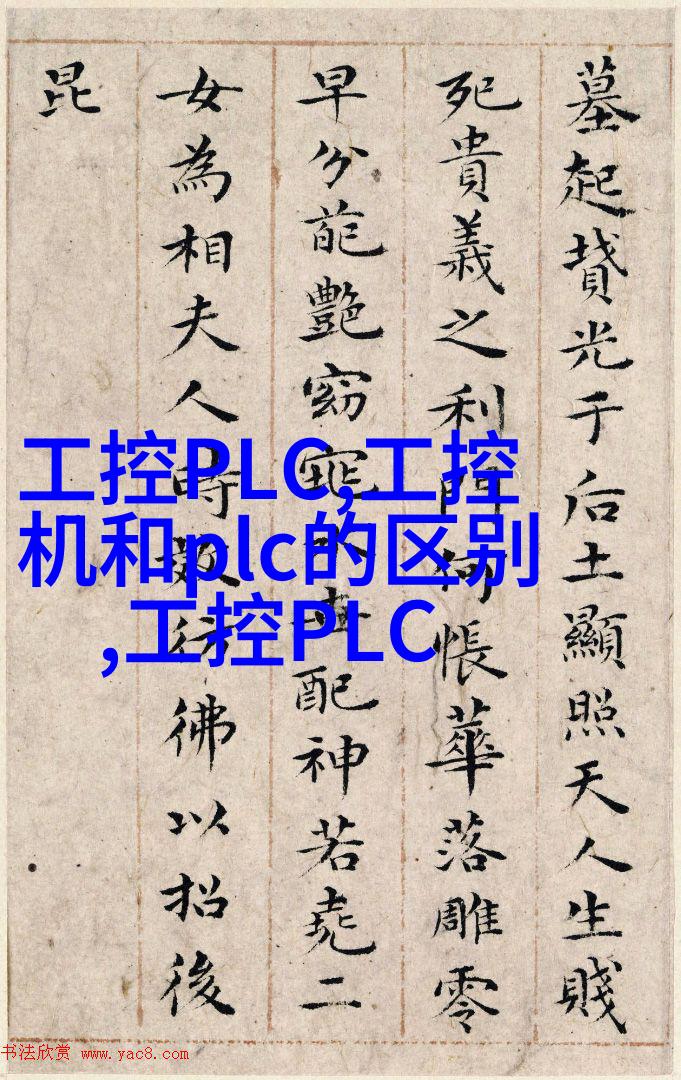 墓起墳光于后土顯照天人生賤
死貴義之利門何悵華落雕零
早分葩艷窈窕永世配神若堯二
女為相夫人時效彷彿以招後
昆
工控PLC,工控
机和plc的区别
,工控PLC
书法欣赏 www.yac8.com